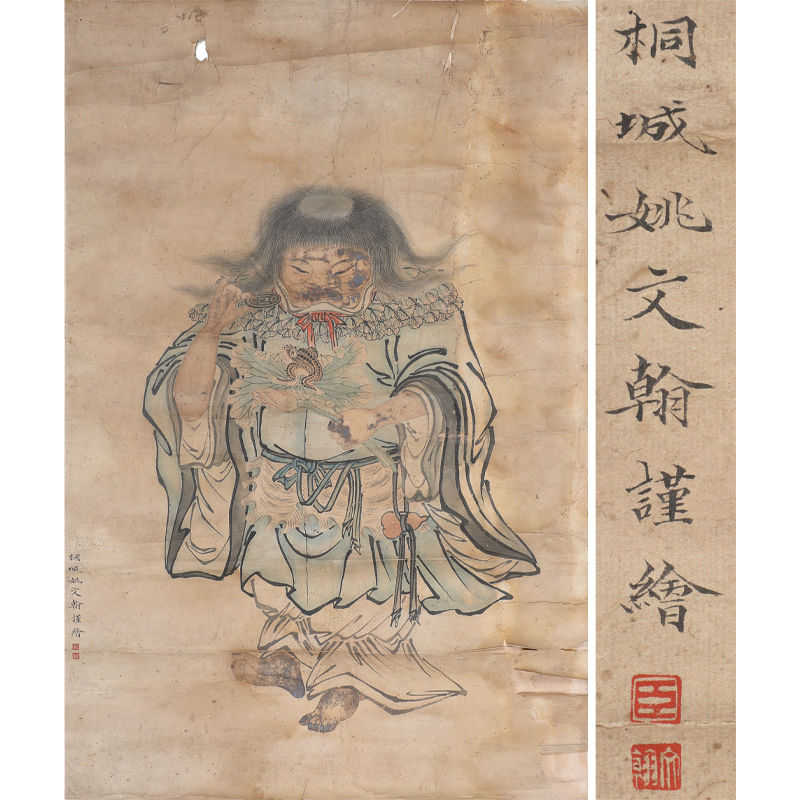 桐城姚文翰謹繪
臣
文翰
桐城姚文翰謹繪